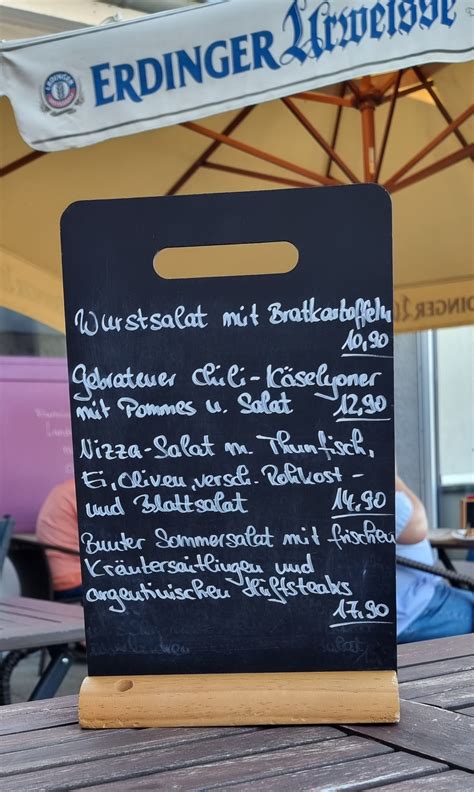 ERDINGER Urweisse
ERDINGER
Wurstsalat mit Bratkartoffeln
10,90
Gebratener Chili-Käselyoner
mit Pommes u. Salat 12,90
Nizza-Salat m. Thunfisch,
Ei, Oliven, versch. Rohkost-
und Blattsalat 14,90
Bunter Sommersalat mit frischen
Kräutersaitlingen und
argentinischen Hüftsteaks
17,90